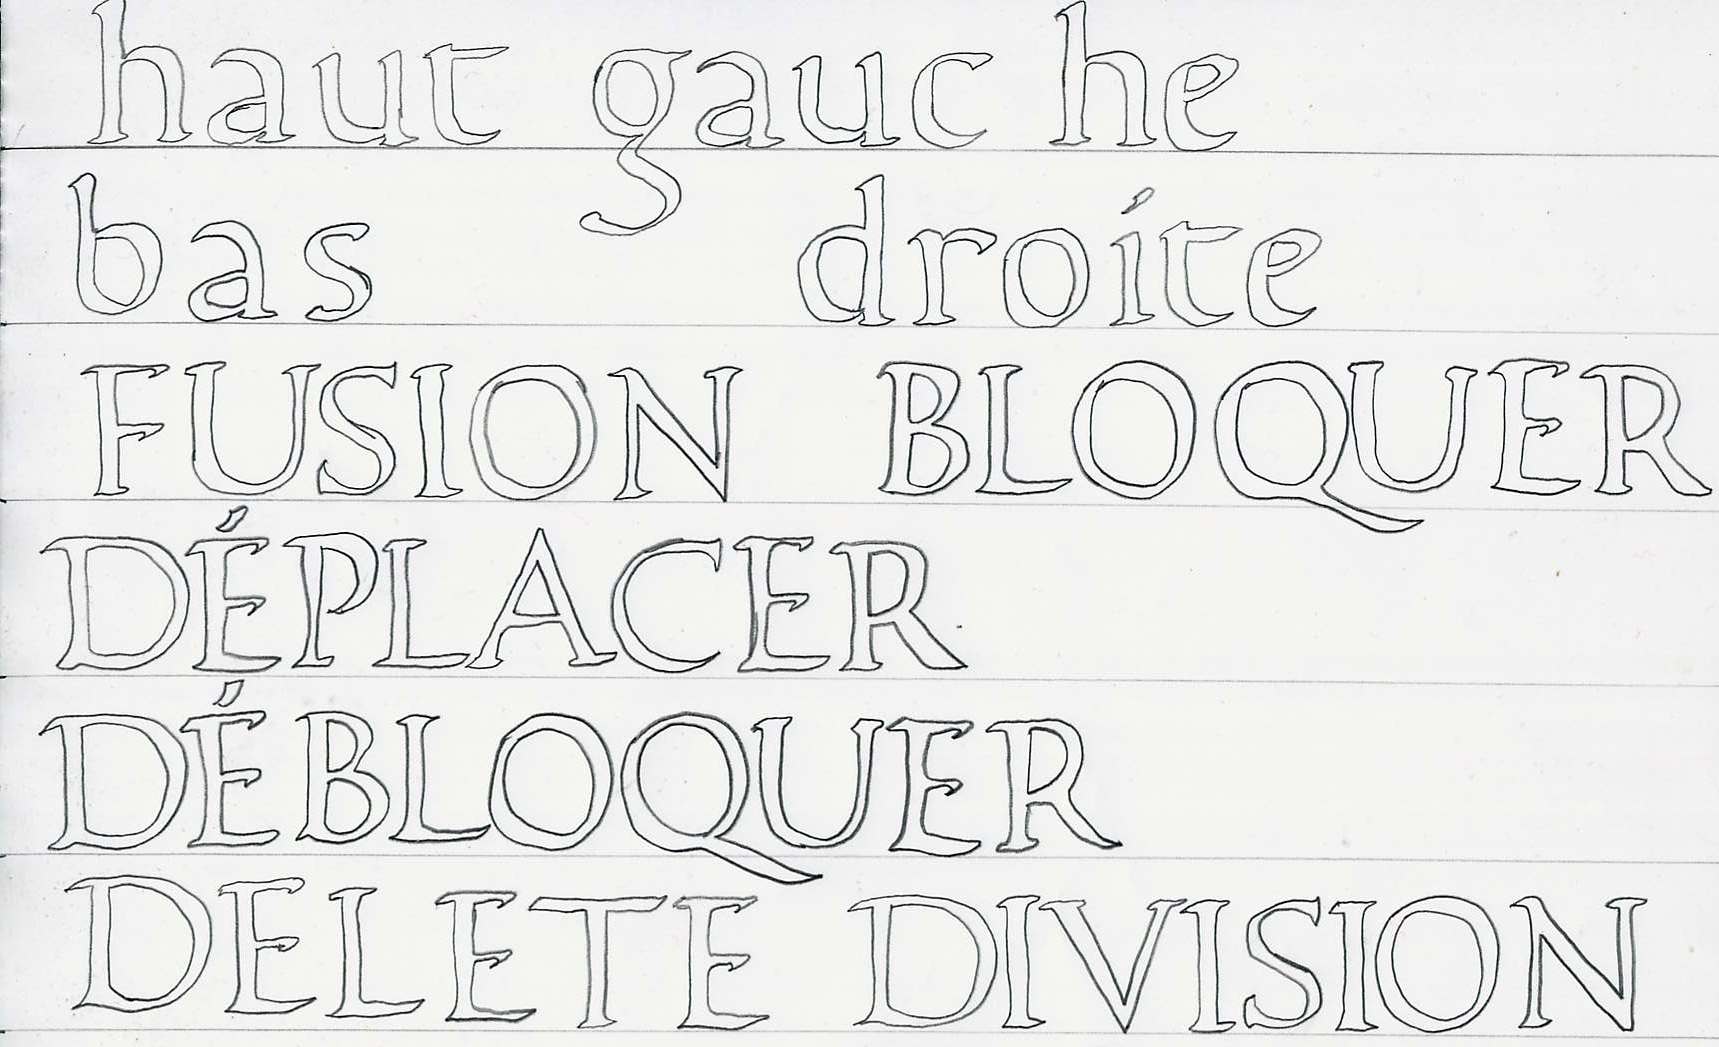 haut gauche
bas droite
FUSION BLOQUER
DÉPLACER
DÉBLOQUER
DELETE DIVISION